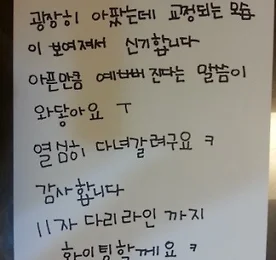 굉장히 아팠는데 교정되는 모습
이 보여져서 신기합니다
아픈만큼 예뻐진다는 말씀이
와닿아요 ㅜ
열심히 다녀갈려구요 ㅋ
감사합니다
11자 다리라인 까지
화이팅할께요 ㅋ